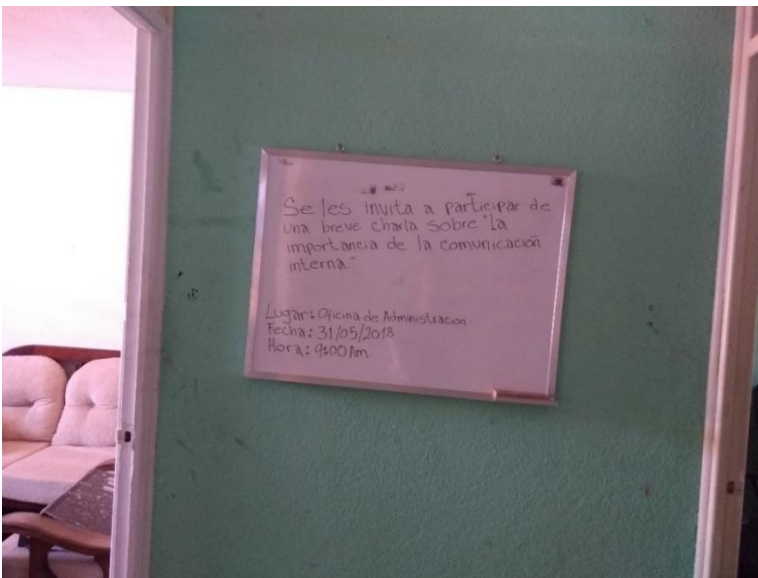 Se les invita a participar de
una breve charla sobre "La
importancia de la comunicación
interna."
Lugar: Oficina de Administracion
Fecha: 31/05/2018
Hora: 9:00 Am.